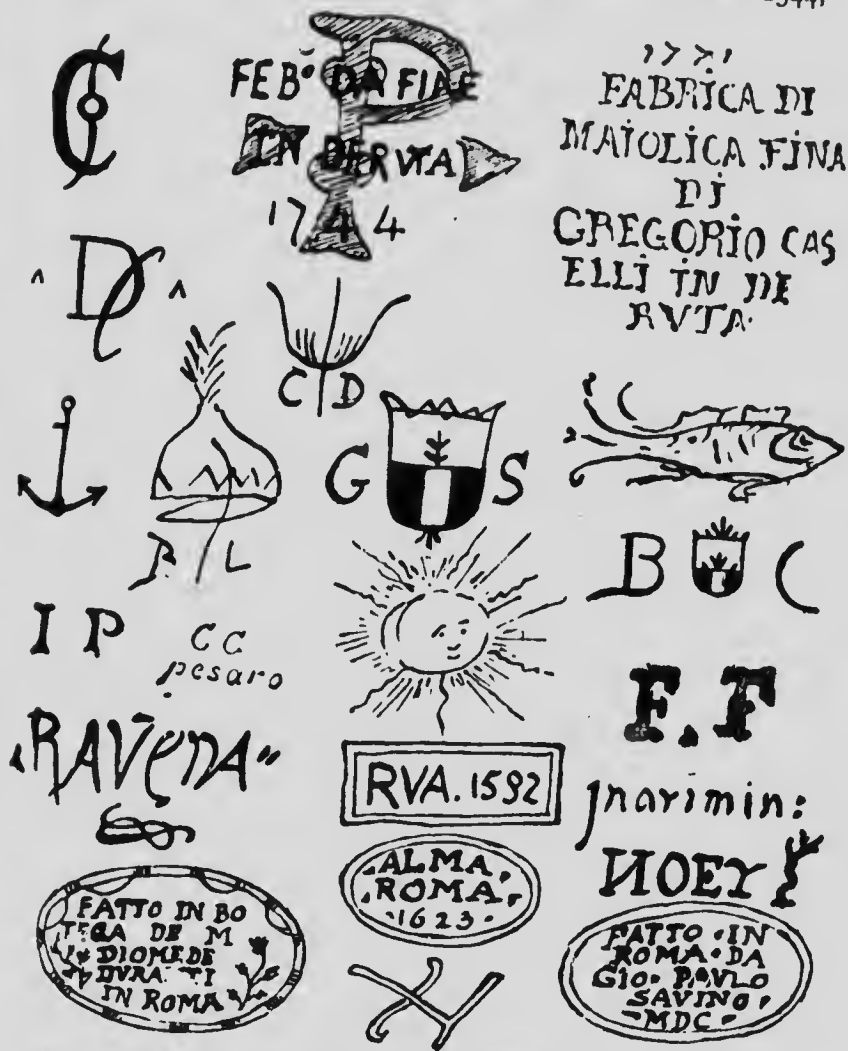 FEBº DA FIAE
IN DERVTA
1744
1771
FABRICA DI
MAIOLICA FINA
DI
GREGORIO CAS
ELLI IN DE
RVTA
C D
G S
P L
B C
I P
C C
pesaro
F.F
"RAVENA"
RVA.1592
Jnarimin:
ALMA
ROMA
1623
FATTO IN BO
TEGA DE M
DIOMEDE
DVRA TI
IN ROMA
FATTO · IN
ROMA · DA
GIO · PAVLO
SAVINO
MDC